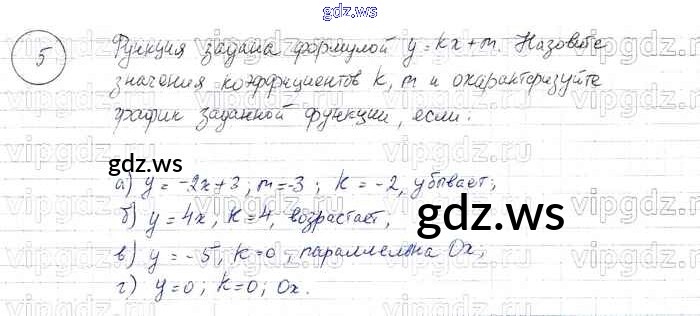 gdz.ws
5 Функция задана формулой y = kx + m. Назовите
значения коэффициентов k, m и охарактеризуйте
график заданной функции, если:
gdz.ws
а) y = -2x + 3, m = -3; k = -2, убывает;
б) y = 4x, k = 4, возрастает,
gdz.ws
в) y = -5, k = 0, параллельна Ox;
г) y = 0; k = 0; Ox.